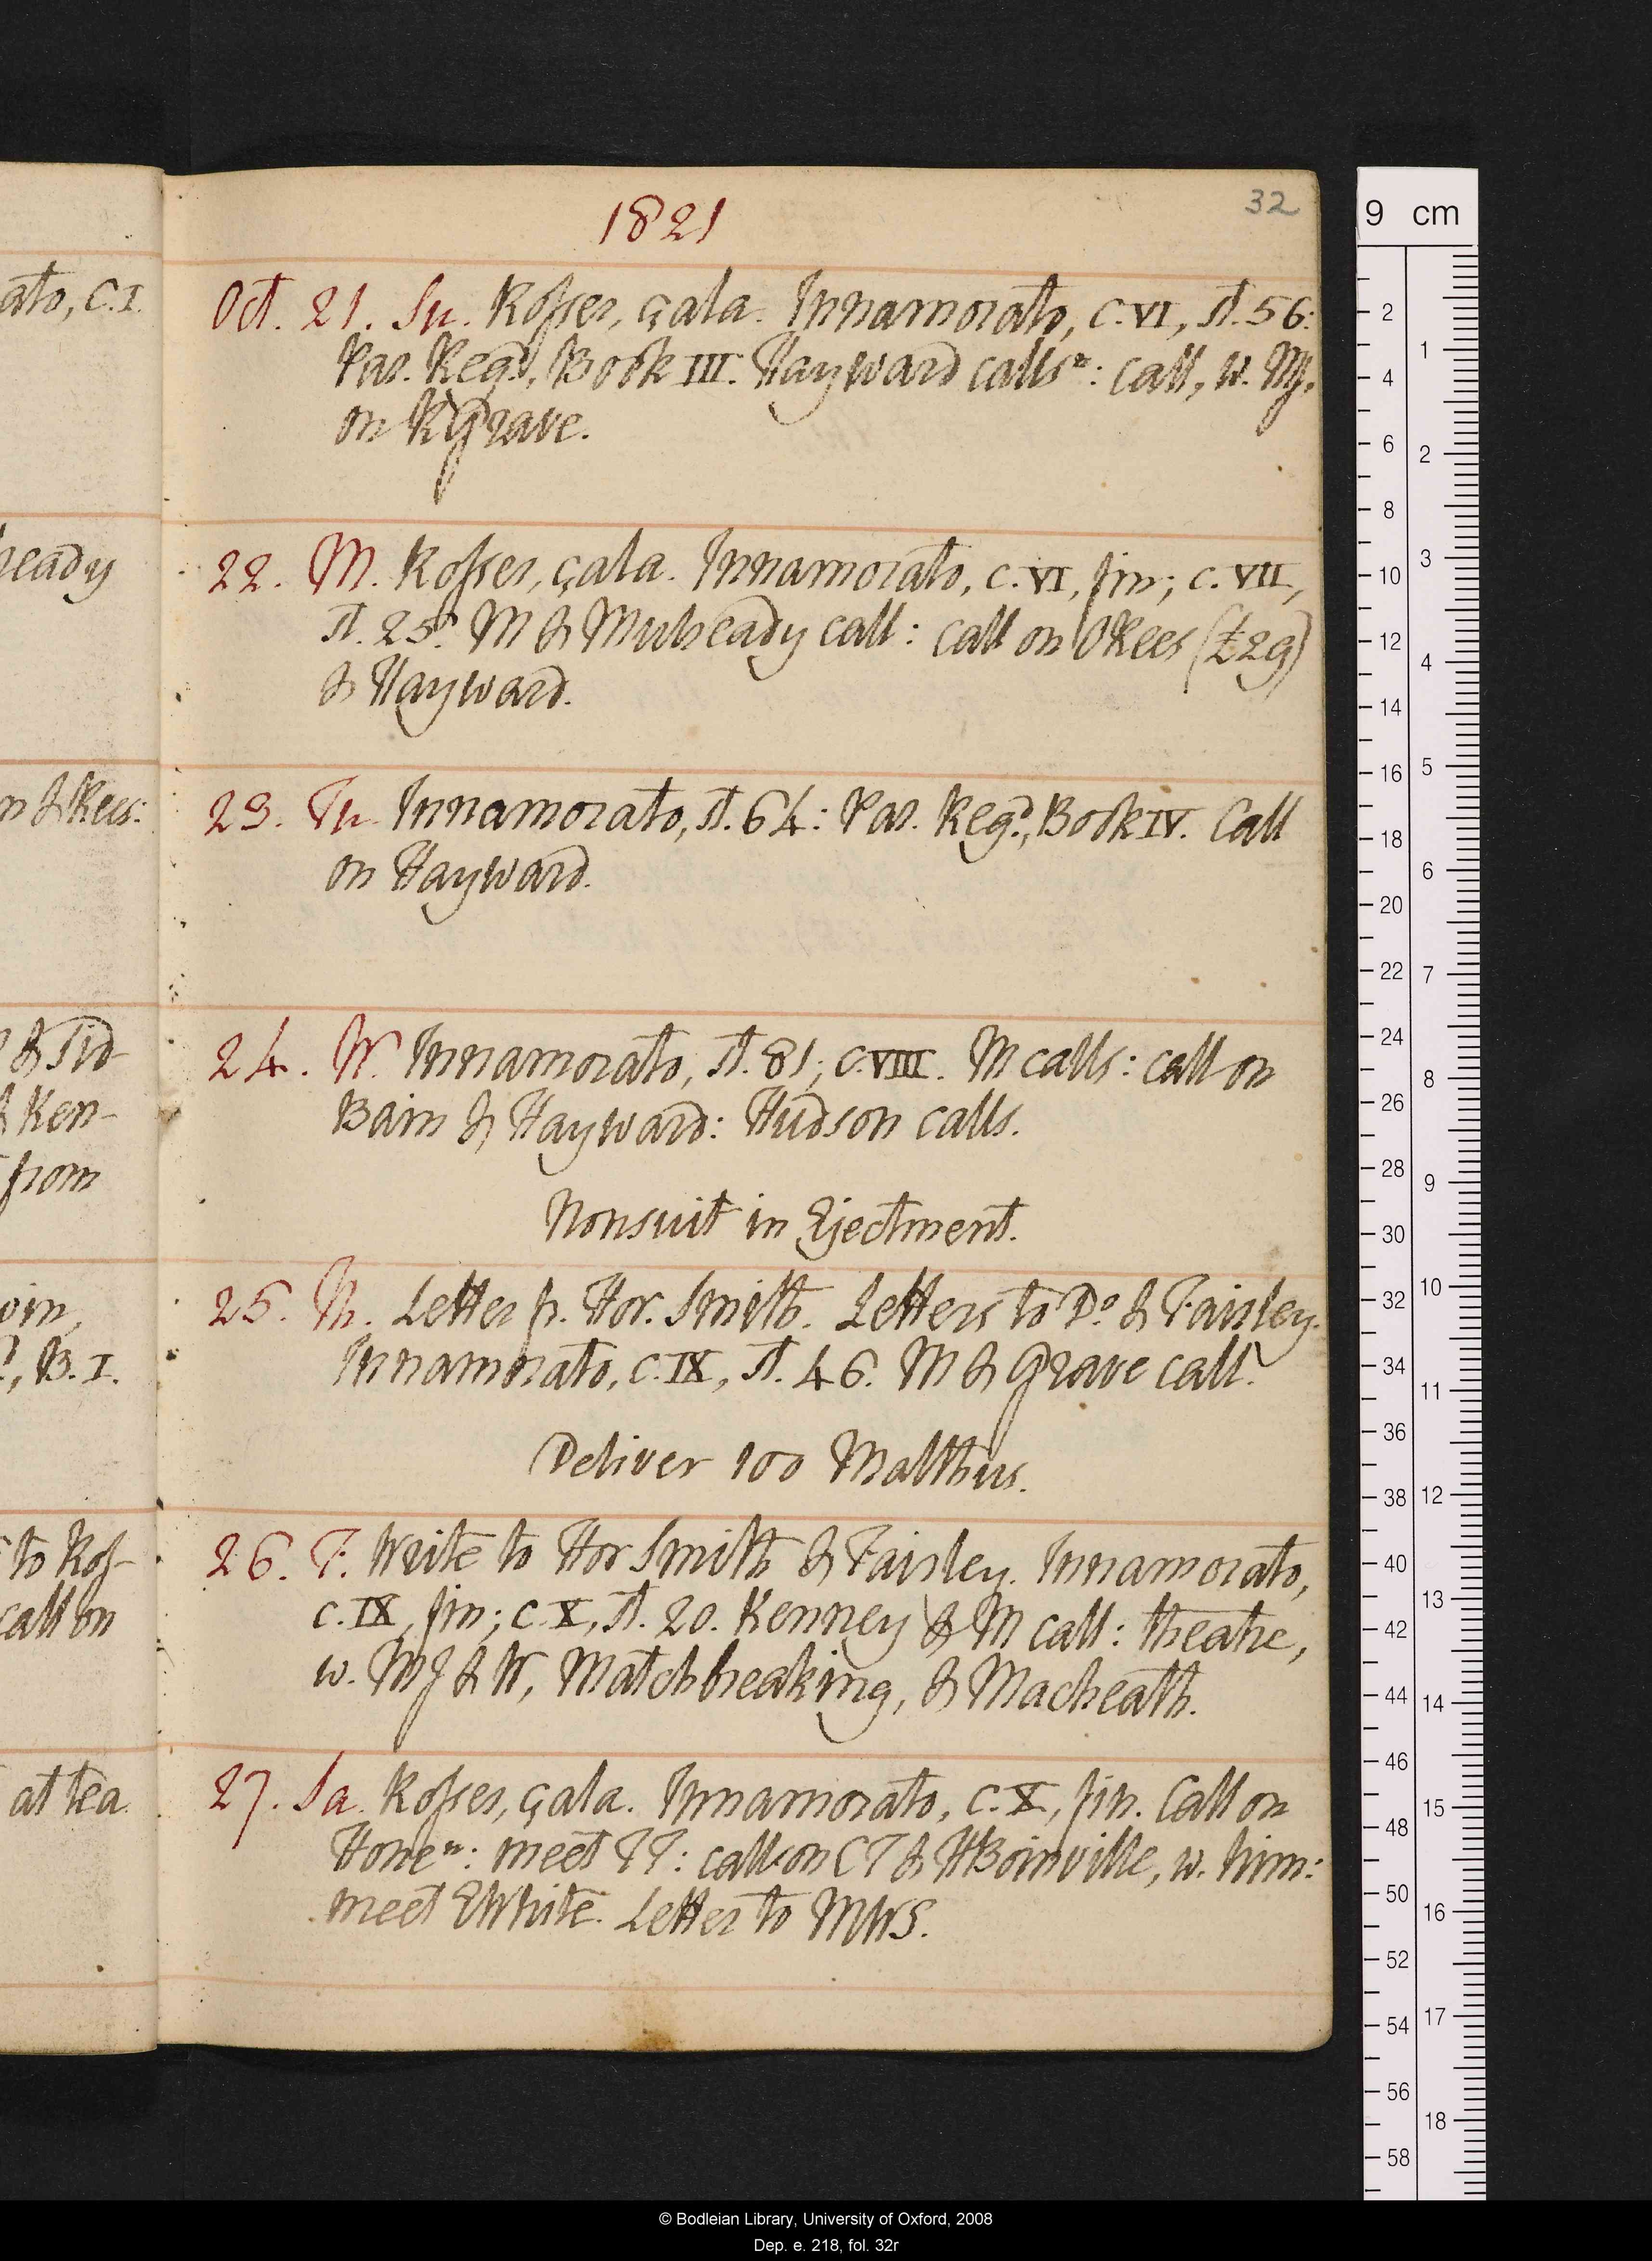 32
1821
ato, C.I.
Oct. 21. Su. Rosser, çala. Innamorato, C. VI, st. 56:
Par. Regr., Book III. Hayward calls n: call, w. MJ,
on RGrave.
heady
22. M. Rosser, çala. Innamorato, C. VI, fin; C. VII,
st. 25. M & Mulready call: call on ORees (£29)
& Hayward.
n & Rees:
23. Tu. Innamorato, st. 64: Par. Regr., Book IV. Call
on Hayward.
& Sid-
& Ken-
from
24. W. Innamorato, st. 81; C. VIII. M calls: call on
Bain & Hayward: Hudson calls.
Nonsuit in Ejectment.
win,
, B. I.
25. Th. Letter fr. Hor. Smith. Letters to Do. & Fairley.
Innamorato, C. IX, st. 46. M & Grave call.
Deliver 100 Malthus.
to Ros-
call on
26. F. Write to Hor Smith & Fairley. Innamorato,
C. IX, fin; C. X, st. 20. Kenney & M call: theatre,
w. MJ & W, Matchbreaking, & Macheath.
at tea.
27. Sa. Rosser, çala. Innamorato, C. X, fin. Call on
Hone n: meet TT: call on CT & HBoinville, w. him:
meet EWhite. Letter to MWS.
9 cm
2
4
6
8
10
12
14
16
18
20
22
24
26
28
30
32
34
36
38
40
42
44
46
48
50
52
54
56
58
1
2
3
4
5
6
7
8
9
10
11
12
13
14
15
16
17
18
© Bodleian Library, University of Oxford, 2008
Dep. e. 218, fol. 32r